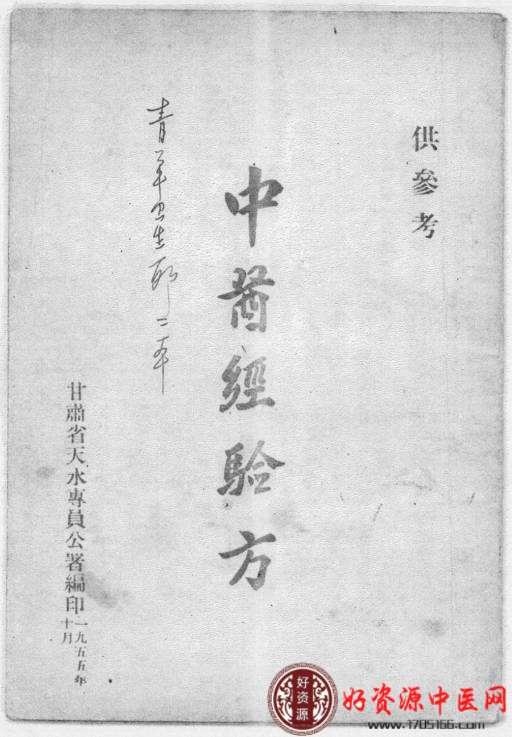 供參考
中醫經驗方
青年卫生部 二本
甘肅省天水專員公署編印
一九五五年
十月
好资源
好资源中医网
www.1705166.com